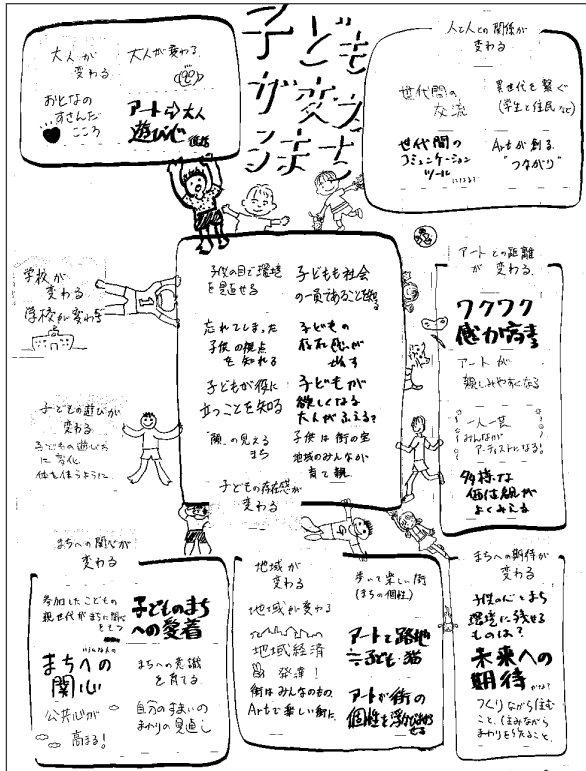 子ども
が変え
るまち
大人が
変わる
大人が変わる
おとなの
すさんだ
こころ
アート⇨大人
遊び心
人と人との関係が
変わる
世代間の
交流
異世代を繋ぐ
(学生と住民など)
世代間の
コミュニケーション
ツール
Artが創る
"つながり"
学校が
変わる
学校が変わる
子供の目で環境
を見直せる
子どもも社会
の一員であること
忘れてしまった
子供の視点
を知れる
子どもの
存在感が
増す
子どもが役に
立つことを知る
子どもが
欲しくなる
大人がふえる?
顔の見える
まち
子供は街の宝
地域のみんなが
育て親
子どもの存在感が
変わる
アートとの距離
が変わる
ワクワク
感が
アートが
親しみやすくなる
一人一芸
みんなが
アーティストになる!
多様な
価値観が
よくみえる
子どもの遊びが
変わる
子どもの遊びち
に変化
体を使うように
まちへの関心が
変わる
参加したこどもの
親世代がまちに関心
をもつ
子どものまち
への愛着
まちへの
関心
まちへの意識
を育てる
公共心が
高まる!
自分のすまいの
まわりの見直し
地域が
変わる
地域が変わる
地域経済
発達!
街はみんなのもの
Artで楽しい街に
歩いて楽しい街
(まちの個性)
アートと路地
≒子ども・猫
アートが街の
個性を浮び
させる
まちへの期待が
変わる
子供の心とまち
環境に残せる
ものは?
未来への
期待
つくりながら住む
こと、住みながら
まわりを